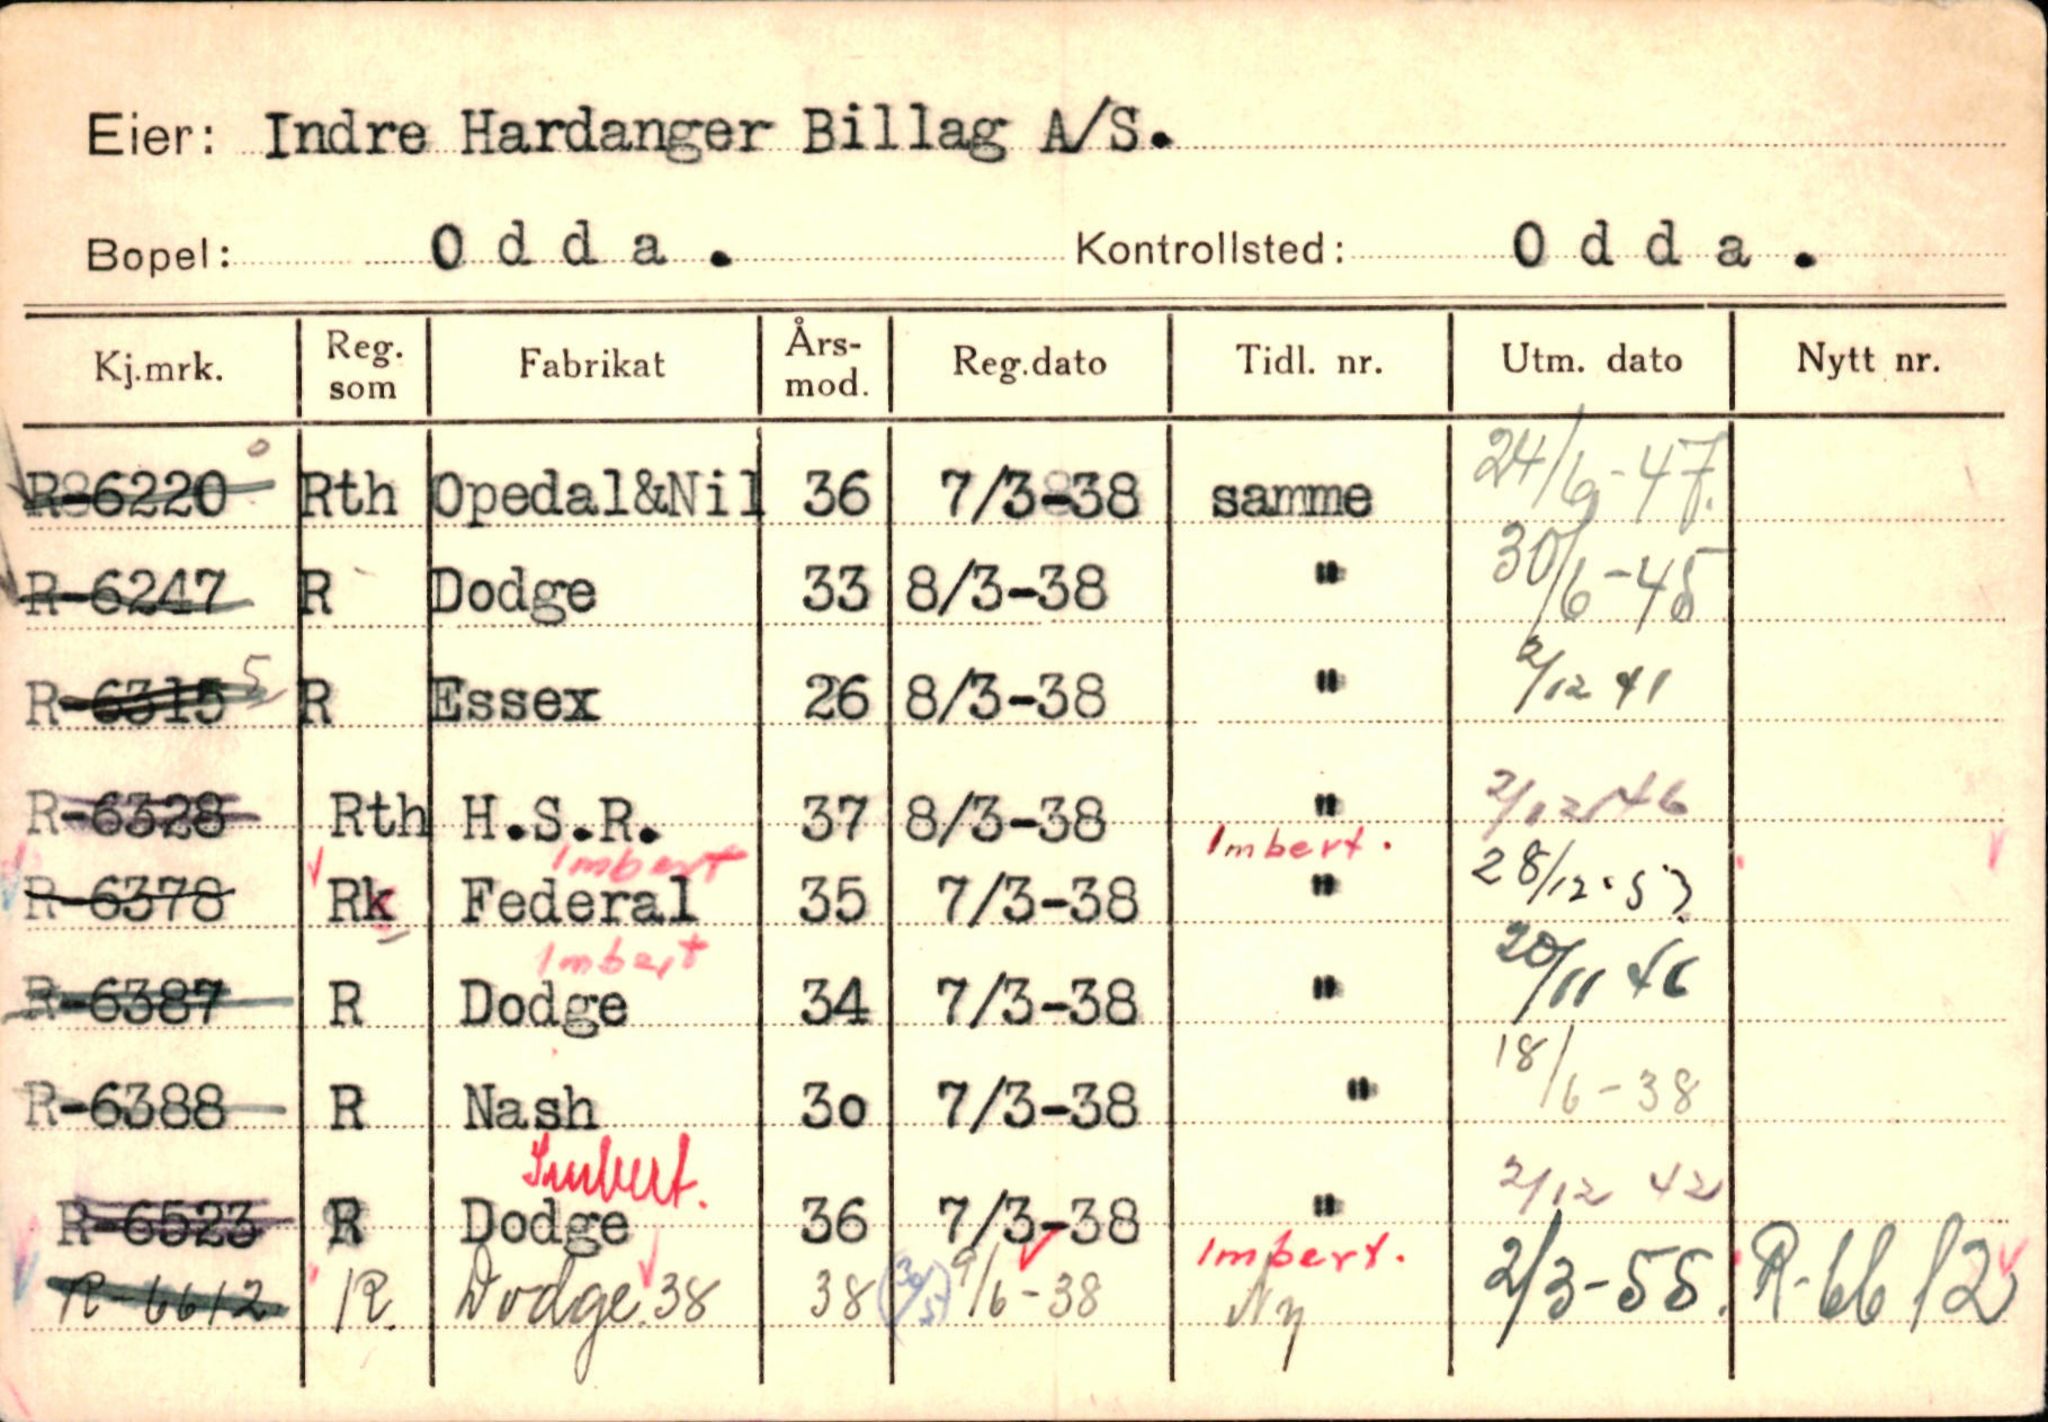 Eier: Indre Hardanger Billag A/S.
Bopel: Odda. Kontrollsted: Odda.
Kj.mrk. Reg. som Fabrikat Års-mod. Reg.dato Tidl. nr. Utm. dato Nytt nr.
R-6220 Rth Opedal&Nil 36 7/3-38 samme 24/6-47.
R-6247 R Dodge 33 8/3-38 " 30/6-45
R-6315 R Essex 26 8/3-38 " 2/12 41
R-6328 Rth H.S.R. 37 8/3-38 " 2/12 46
Imbert Imbert.
R-6378 Rk Federal 35 7/3-38 " 28/12-53
Imbert
R-6387 R Dodge 34 7/3-38 " 20/11 46
R-6388 R Nash 30 7/3-38 " 18/6-38
Imbert.
R-6523 R Dodge 36 7/3-38 " 2/12 42
Imbert.
R-6612 R. Dodge 38 38 9/6-38 Ny 2/3-55. R-6612